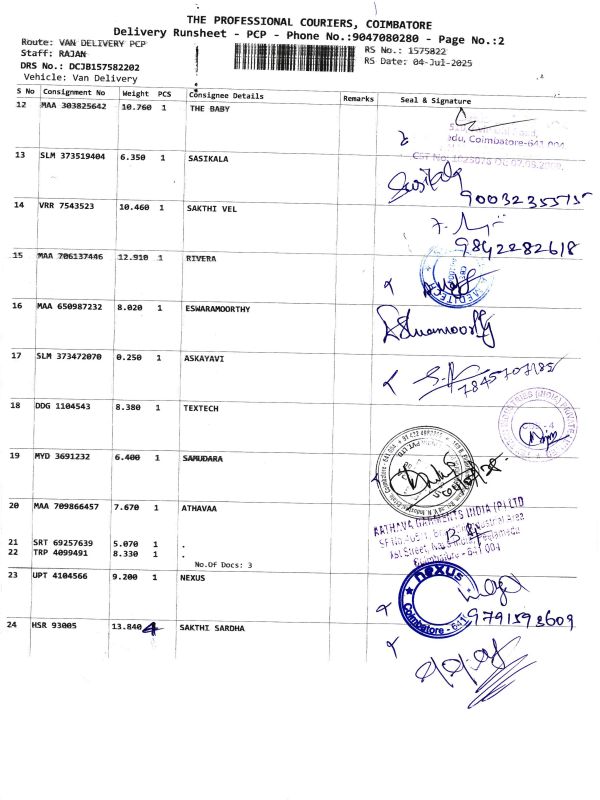 THE PROFESSIONAL COURIERS, COIMBATORE
Delivery Runsheet - PCP - Phone No.:9047080280 - Page No.:2
Route: VAN DELIVERY PCP
Staff: RAJAN
DRS No.: DCJB157582202
Vehicle: Van Delivery
RS No.: 1575822
RS Date: 04-Jul-2025
S No Consignment No Weight PCS Consignee Details Remarks Seal & Signature
12 MAA 303825642 10.760 1 THE BABY
Coimbatore-641 004
13 SLM 373519404 6.350 1 SASIKALA
Sasikala
9003235515
14 VRR 7543523 10.460 1 SAKTHI VEL
9842282618
15 MAA 706137446 12.910 1 RIVERA
16 MAA 650987232 8.020 1 ESWARAMOORTHY
17 SLM 373472070 0.250 1 ASKAYAVI
7845707185
18 DDG 1104543 8.380 1 TEXTECH
19 MYD 3691232 6.400 1 SAMUDARA
20 MAA 709866457 7.670 1 ATHAVAA
GARMENTS INDIA (P) LTD
Coimbatore - 641 004
21 SRT 69257639 5.070 1 .
22 TRP 4099491 8.330 1 .
No.Of Docs: 3
23 UPT 4104566 9.200 1 NEXUS
nexus
Coimbatore - 641
9791593609
24 HSR 93005 13.840 4 SAKTHI SARDHA